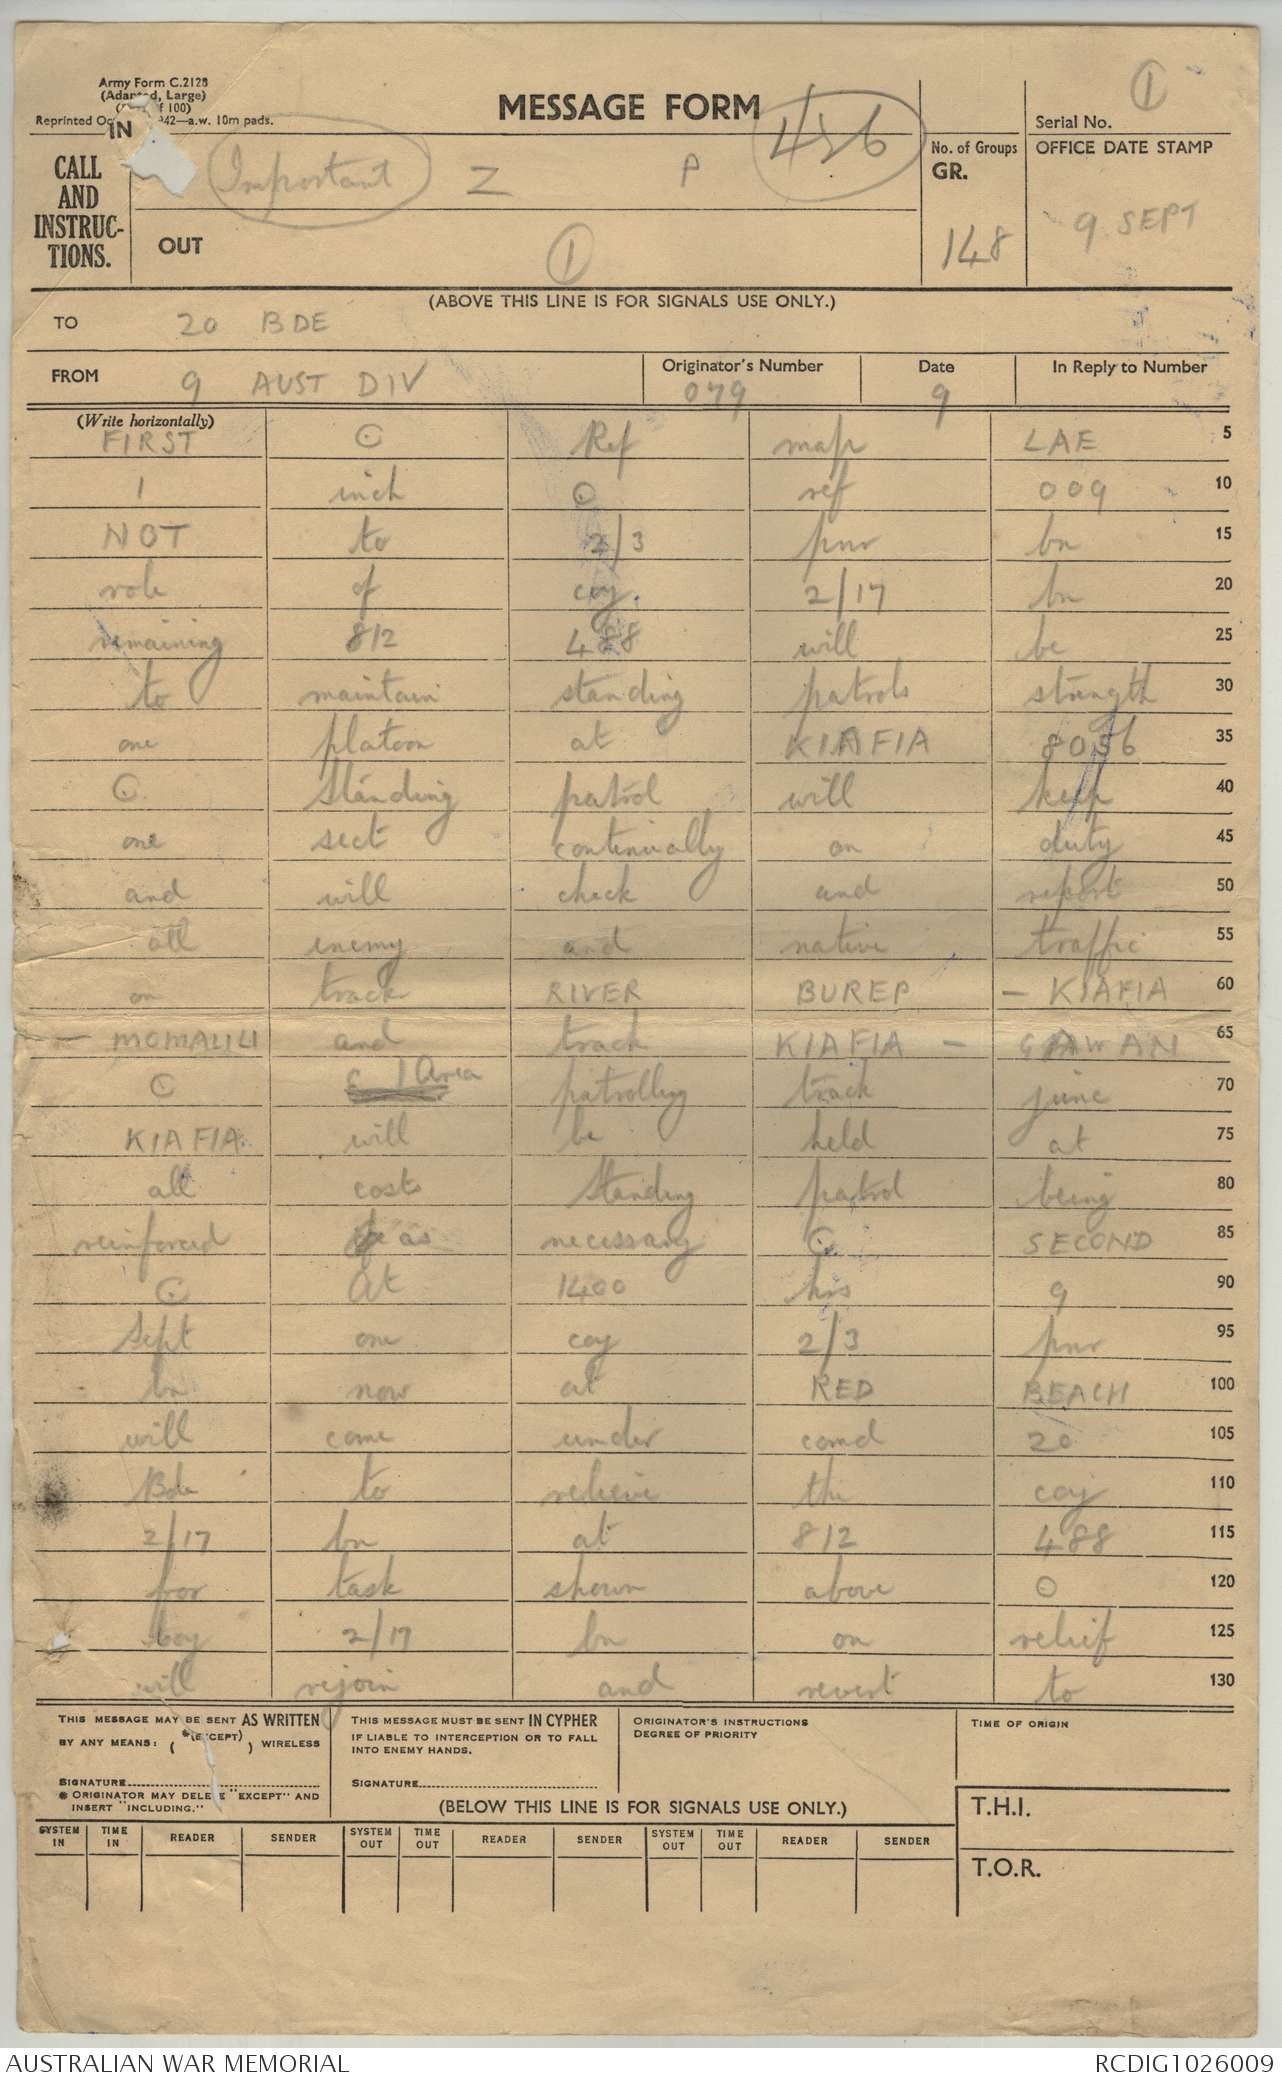 Army Form C.2128
(Adapted, Large)
100)
Reprinted 1942—a.w. 10m pads.
MESSAGE FORM
456
①
Serial No.
CALL AND INSTRUC-TIONS.
IN
Important Z P
No. of Groups GR.
148
OFFICE DATE STAMP
9 SEPT
OUT ①
(ABOVE THIS LINE IS FOR SIGNALS USE ONLY.)
TO 20 BDE
FROM 9 AUST DIV
Originator's Number 079
Date 9
In Reply to Number
(Write horizontally)
FIRST ⊙ Ref map LAE 5
1 inch ⊙ ref 009 10
NOT to 2/3 pnr bn 15
role of coy 2/17 bn 20
remaining 812 488 will be 25
to maintain standing patrols strength 30
one platoon at KIAFIA 8056 35
⊙ Standing patrol will keep 40
one sect continually on duty 45
and will check and report 50
all enemy and native traffic 55
on track RIVER BUREP - KIAFIA 60
- MOMALILI and track KIAFIA - GAWAN 65
⊙ Area patrolling track junc 70
KIAFIA will be held at 75
all costs Standing patrol being 80
reinforced as necessary ⊙ SECOND 85
⊙ At 1400 hrs 9 90
Sept one coy 2/3 pnr 95
bn now at RED BEACH 100
will come under comd 20 105
Bde to relieve the coy 110
2/17 bn at 812 488 115
for task shown above ⊙ 120
coy 2/17 bn on relief 125
will rejoin and revert to 130
THIS MESSAGE MAY BE SENT AS WRITTEN
BY ANY MEANS: ( *(EXCEPT) ) WIRELESS
SIGNATURE
* ORIGINATOR MAY DELETE "EXCEPT" AND INSERT "INCLUDING."
THIS MESSAGE MUST BE SENT IN CYPHER
IF LIABLE TO INTERCEPTION OR TO FALL INTO ENEMY HANDS.
SIGNATURE
ORIGINATOR'S INSTRUCTIONS
DEGREE OF PRIORITY
TIME OF ORIGIN
(BELOW THIS LINE IS FOR SIGNALS USE ONLY.)
T.H.I.
SYSTEM IN TIME IN READER SENDER SYSTEM OUT TIME OUT READER SENDER SYSTEM OUT TIME OUT READER SENDER
T.O.R.
AUSTRALIAN WAR MEMORIAL RCDIG1026009